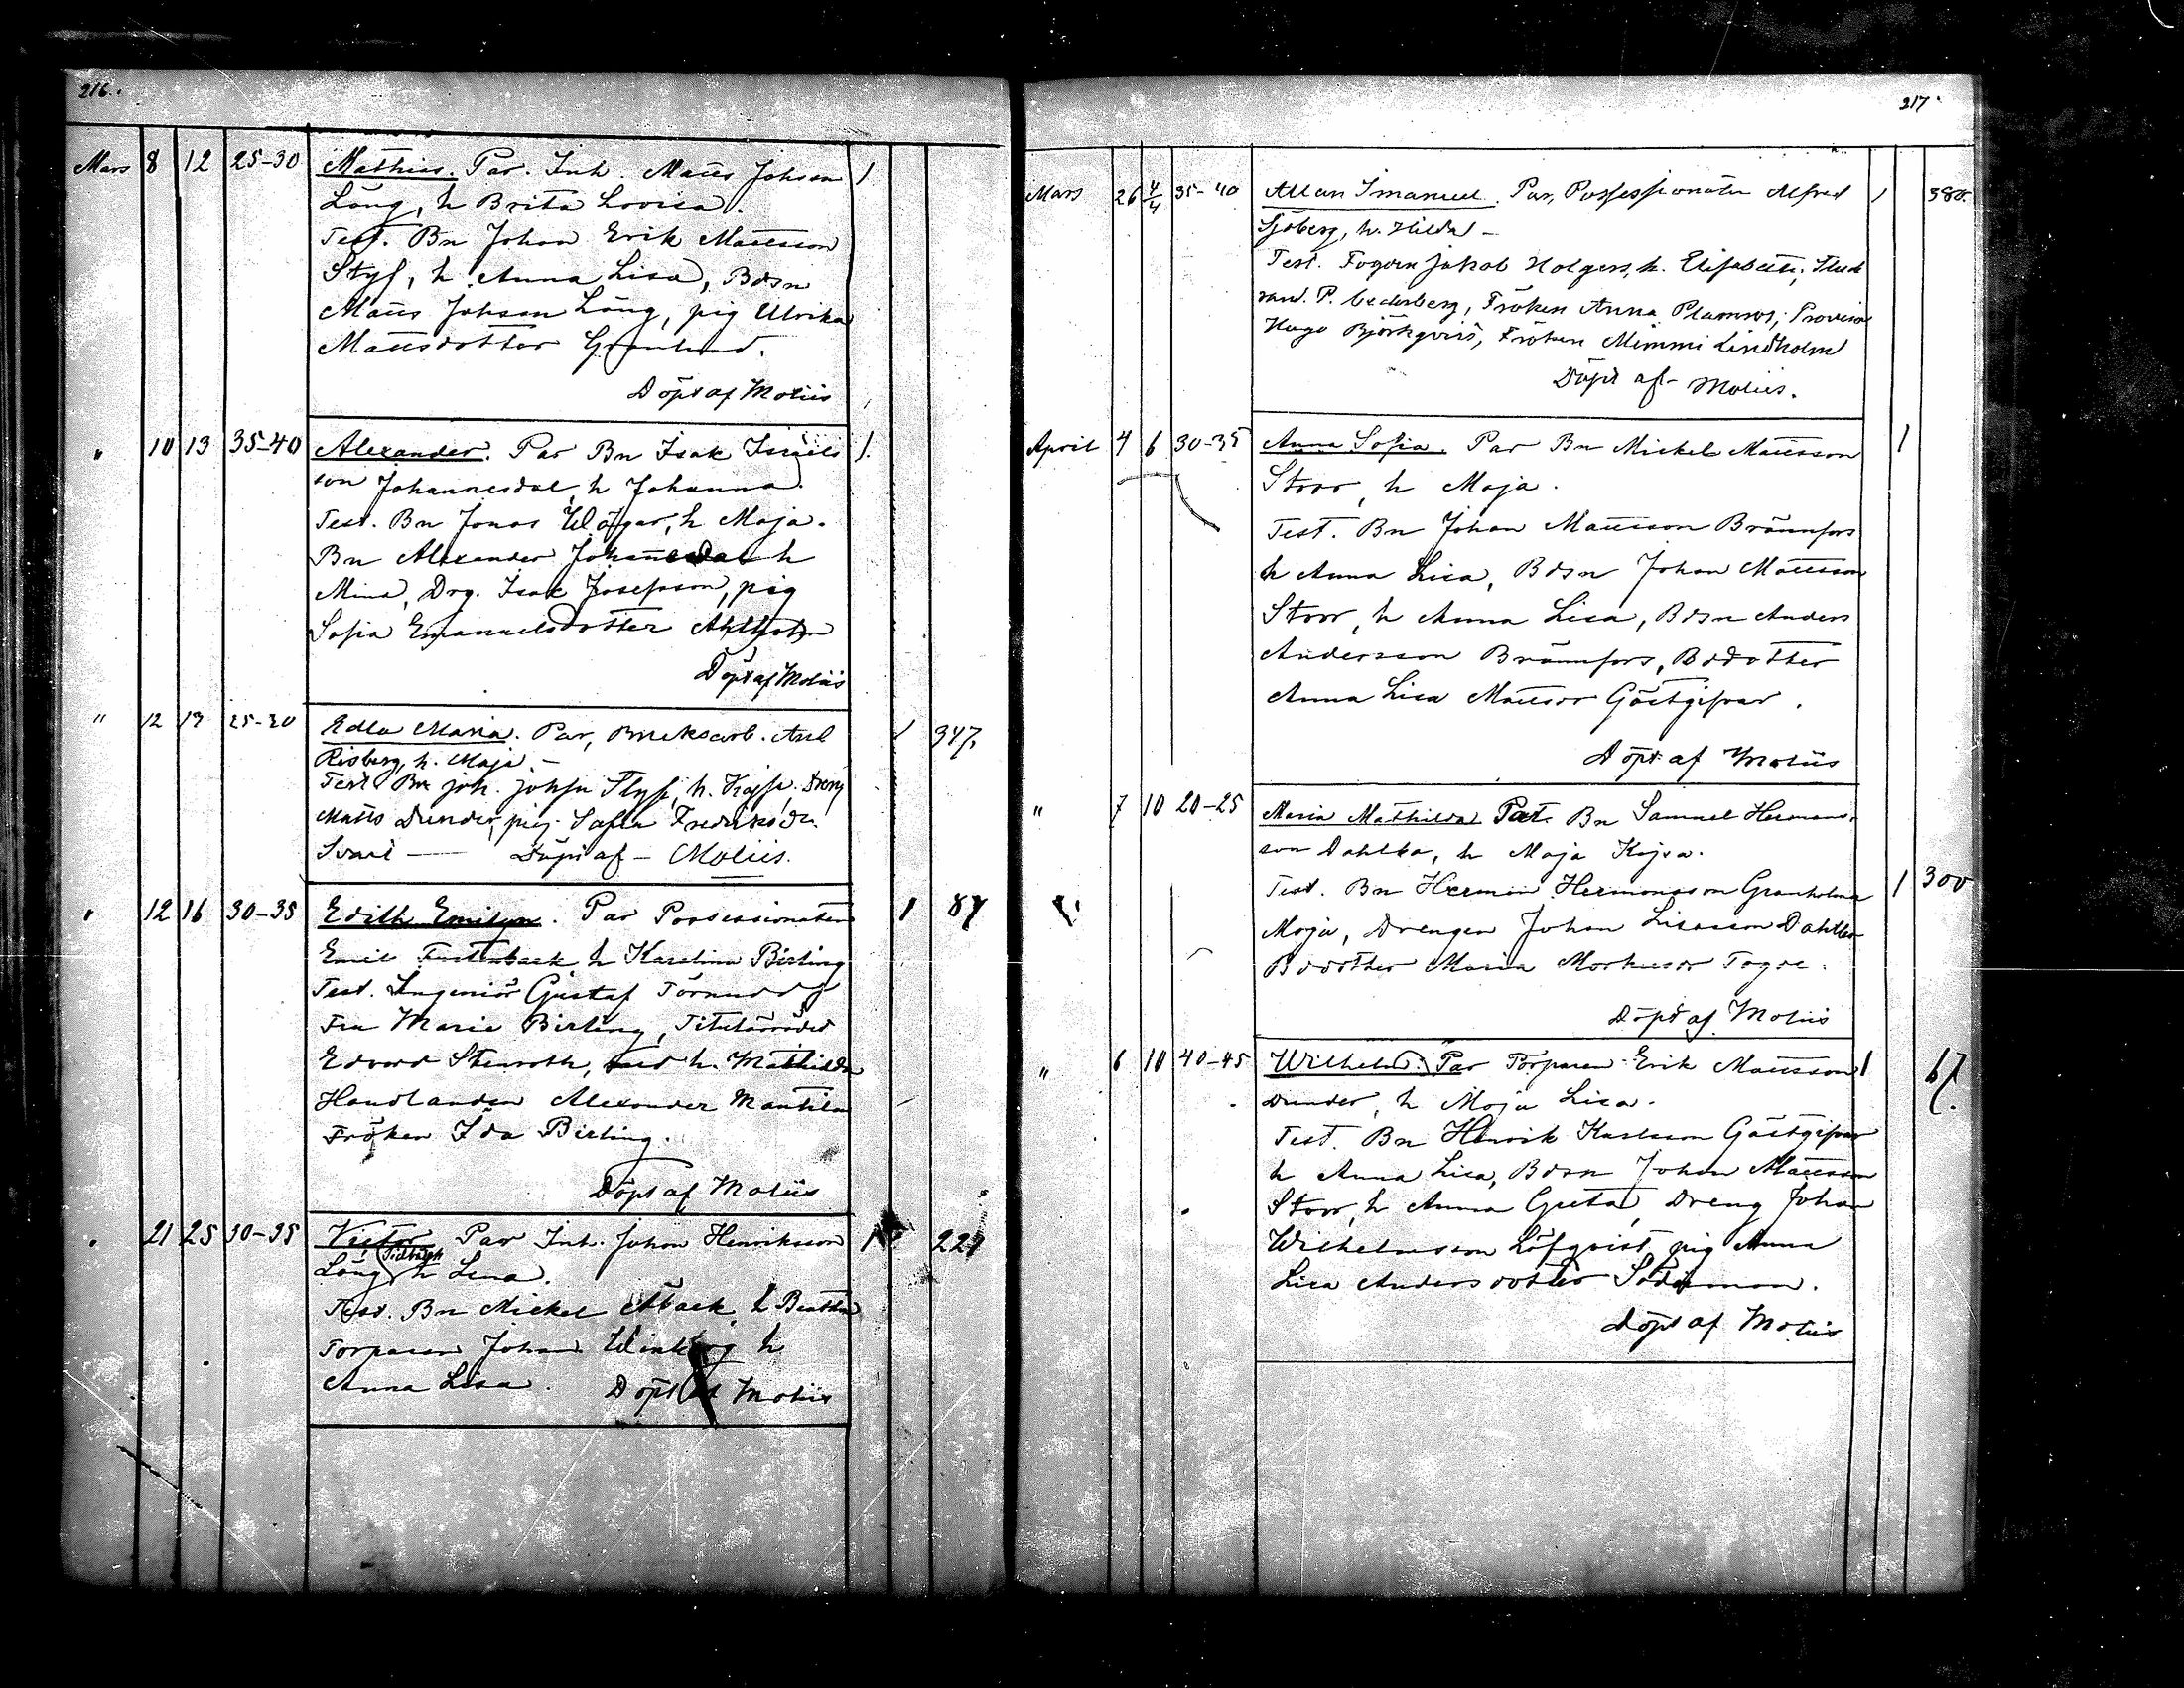 216.
Mars 8 12 25-30 Mathias. Par. Inh. Matts Johsson 1
Lång, h Brita Lovisa.
Test. Bn Johan Erik Mattsson
Styf, h Anna Lisa, Bdsn
Matts Johsson Lång, pig Ulrika
Mattsdotter Granlund.
Döpt af Moliis
" 10 13 35-40 Alexander. Par Bn Isak Israels 1.
son Johannesdal, h Johanna.
Test. Bn Jonas Wägar, h Maja.
Bn Alexander Johannesdal h
Mina, Drg. Isak Josefsson, pig
Sofia Emanuelsdotter Ahlholm
Döpt af Moliis
" 12 25-30 Edla Maria. Par, Bruksarb. Axel 1 347.
Risberg, h. Maja. –
Test Bn Joh. Johsn Styf, h. Kajsa, Dreng
Matts Dunder, pig. Sofia Fredriksdr.
Svart — Döpt af – Moliis.
" 12 16 30-35 Edith Emilya. Par Possessionaten 1 87
Emil h Karolina Birling
Test. Ingeniör Gustaf Törnudd
Fru Maria Birling, Titulärrådet
Edvard Stenroth, med h. Mathilda
Handlanden Alexander Mantila
Fröken Ida Birling.
Döpt af Moliis
" 21 25 30-35 Victor Par Inh. Johan Henriksson 1 221
Lång h Lena.
Test. Bn Mickel Åback h Beatha
Torparen Johan Winberg h
Anna Lisa. Döpt af Moliis
217.
Mars 26 4/4 35-40 Allan Imanuel. Par, Possessionaten Alfred 1 380.
Sjöberg, h. Hilda –
Test. Fogden Jakob Holgers, h. Elisabeth; Stud
rand. P. Cederberg, Fröken Anna Provisor
Hugo Björkqvist, Fröken Mimmi Lindholm
Döpt af – Moliis.
April 4 6 30-35 Anna Sofia. Par Bn Mickel Mattsson 1
Storr, h Maja.
Test. Bn Johan Mattsson Brännfors
h Anna Lisa, Bdsn Johan Mattsson
Storr, h Anna Lisa, Bdsn Anders
Andersson Brännfors, Bddotter
Anna Lisa Mattsdr Gästgifvar.
Döpt af Moliis
" 7 10 20-25 Maria Mathilda Par Bn Samuel Hermans-
son Dahlbo, h Maja Kajsa.
Test. Bn Herman Hermansson Granholm 1 300
Maja, Drengen Johan Dahlbo
Bddotter Maria
Döpt af Moliis
" 6 10 40-45 Wilhelm. Par Torparen Erik Mattsson 1 67
Dunder, h Maja Lisa.
Test. Bn Henrik Karlsson Gästgifvar
h Anna Lisa, Bdsn Johan Mattsson
Storr, h Anna Greta, Dreng Johan
Wilhelmsson Löfqvist, pig Anna
Lisa Andersdotter Söderman.
Döpt af Moliis